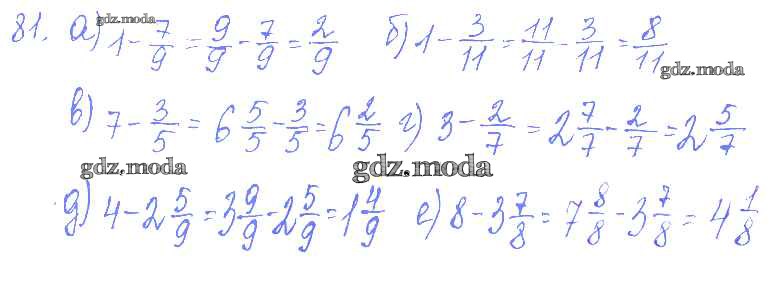 81. а) 1 - 7/9 = 9/9 - 7/9 = 2/9 б) 1 - 3/11 = 11/11 - 3/11 = 8/11
gdz.moda
gdz.moda
в) 7 - 3/5 = 6 5/5 - 3/5 = 6 2/5 г) 3 - 2/7 = 2 7/7 - 2/7 = 2 5/7
gdz.moda
gdz.moda
д) 4 - 2 5/9 = 3 9/9 - 2 5/9 = 1 4/9 е) 8 - 3 7/8 = 7 8/8 - 3 7/8 = 4 1/8